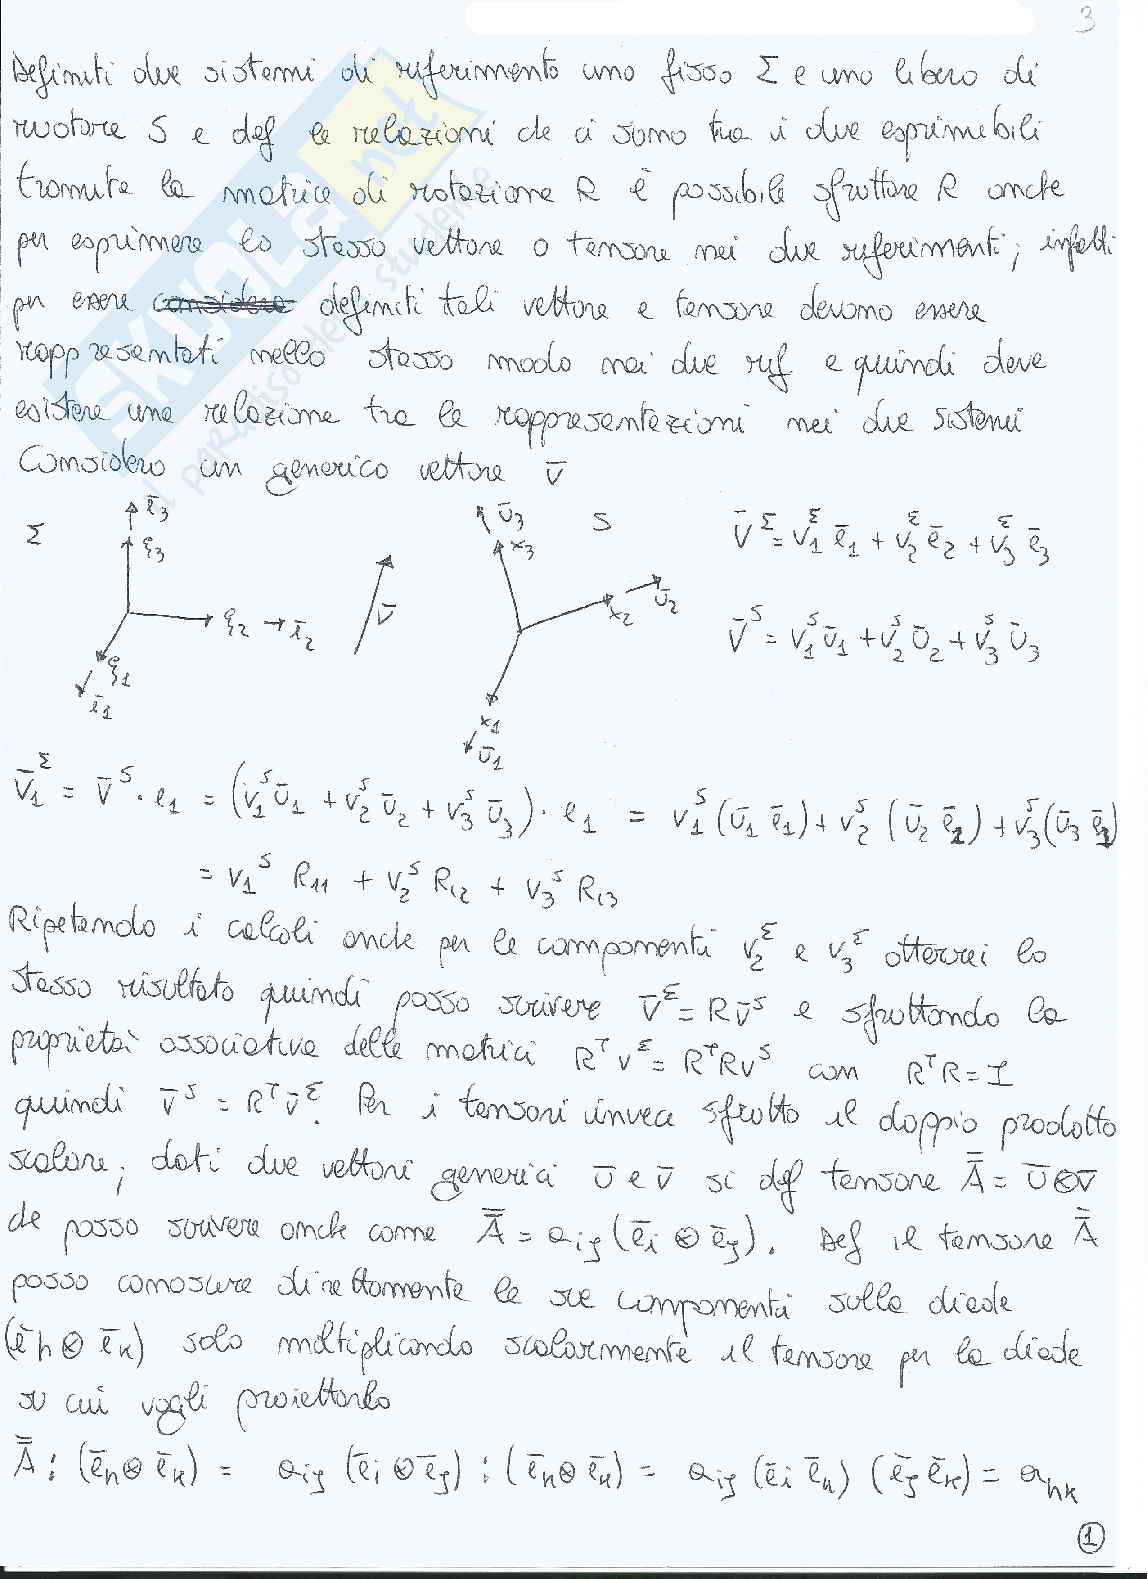 3
Definiti due sistemi di riferimento uno fisso Σ e uno libero di
ruotare S e def le relazioni che ci sono tra i due esprimibili
tramite la matrice di rotazione R è possibile sfruttare R anche
per esprimere lo stesso vettore o tensore nei due riferimenti; infatti
per essere considera definiti tali vettore e tensore devono essere
rappresentati nello stesso modo nei due rif e quindi deve
esistere una relazione tra le rappresentazioni nei due sistemi
Considero un generico vettore v̄
Σ ē3 ξ3 ξ2 ē2 ξ1 ē1 v̄ ū3 x3 S x2 ū2 x1 ū1
v̄^Σ = v1^Σ ē1 + v2^Σ ē2 + v3^Σ ē3
v̄^S = v1^S ū1 + v2^S ū2 + v3^S ū3
v̄1^Σ = v̄^S · e1 = (v1^S ū1 + v2^S ū2 + v3^S ū3) · e1 = v1^S (ū1 ē1) + v2^S (ū2 ē1) + v3^S (ū3 ē1)
= v1^S R11 + v2^S R12 + v3^S R13
Ripetendo i calcoli anche per le componenti v2^Σ e v3^Σ otterrei lo
stesso risultato quindi posso scrivere v̄^Σ = R v̄^S e sfruttando la
proprietà associativa delle matrici R^T v^Σ = R^T R v^S con R^T R = I
quindi v̄^S = R^T v̄^Σ. Per i tensori invece sfrutto il doppio prodotto
scalare; dati due vettori generici ū e v̄ si def tensore A̿ = ū ⊗ v̄
che posso scrivere anche come A̿ = aij (ēi ⊗ ēj). Def il tensore A̿
posso conoscere direttamente le sue componenti sulla diade
(ēh ⊗ ēk) solo moltiplicando scalarmente il tensore per la diade
su cui vogli proiettarlo
A̿ : (ēh ⊗ ēk) = aij (ēi ⊗ ēj) : (ēh ⊗ ēk) = aij (ēi ēh) (ēj ēk) = ahk
1
SKUOLA.net
il paradiso dello studente